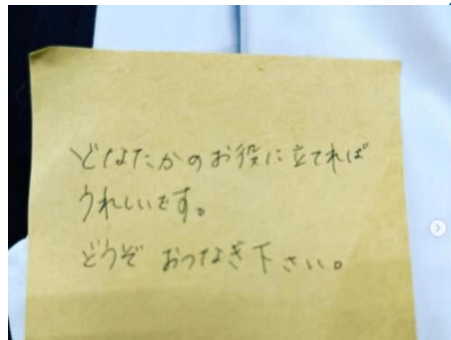 どなたかのお役に立てれば
うれしいです。
どうぞ おつなぎ下さい。